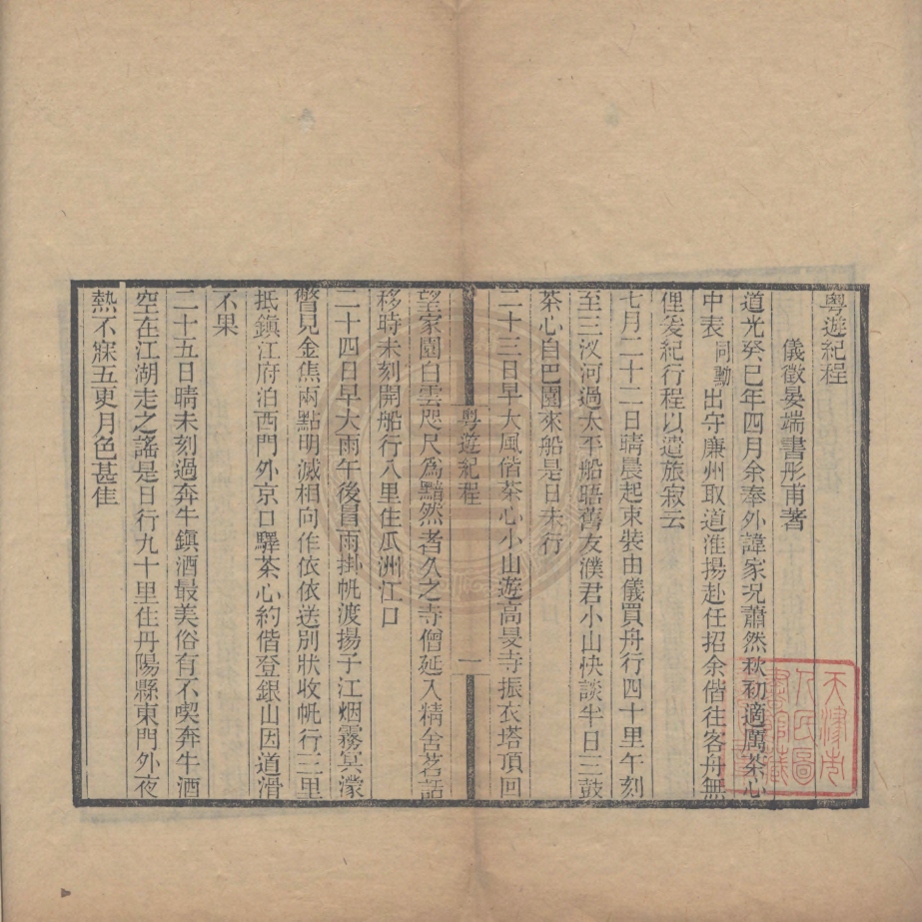 粤遊紀程
儀徵晏端書彤甫著
道光癸巳年四月余奉外諱家况蕭然秋初適厲茶心
中表同勳出守廉州取道淮揚赴任招余偕往客舟無
俚爰紀行程以遣旅寂云
七月二十二日晴晨起束裝由儀買舟行四十里午刻
至三汊河過太平船晤舊友濮君小山快談半日三鼓
茶心自巴園來船是日未行
二十三日早大風偕茶心小山遊高旻寺振衣塔頂回
粤遊紀程
一
望家園白雲咫尺爲黯然者久之寺僧延入精舍茗話
移時未刻開船行八里住瓜洲江口
二十四日早大雨午後冒雨掛帆渡揚子江烟霧冥濛
瞥見金焦兩點明滅相向作依依送別狀收帆行三里
抵鎮江府泊西門外京口驛茶心約偕登銀山因道滑
不果
二十五日晴未刻過奔牛鎮酒最美俗有不喫奔牛酒
空在江湖走之謠是日行九十里住丹陽縣東門外夜
熱不寐五更月色甚隹
天津市
人民圖
書館藏